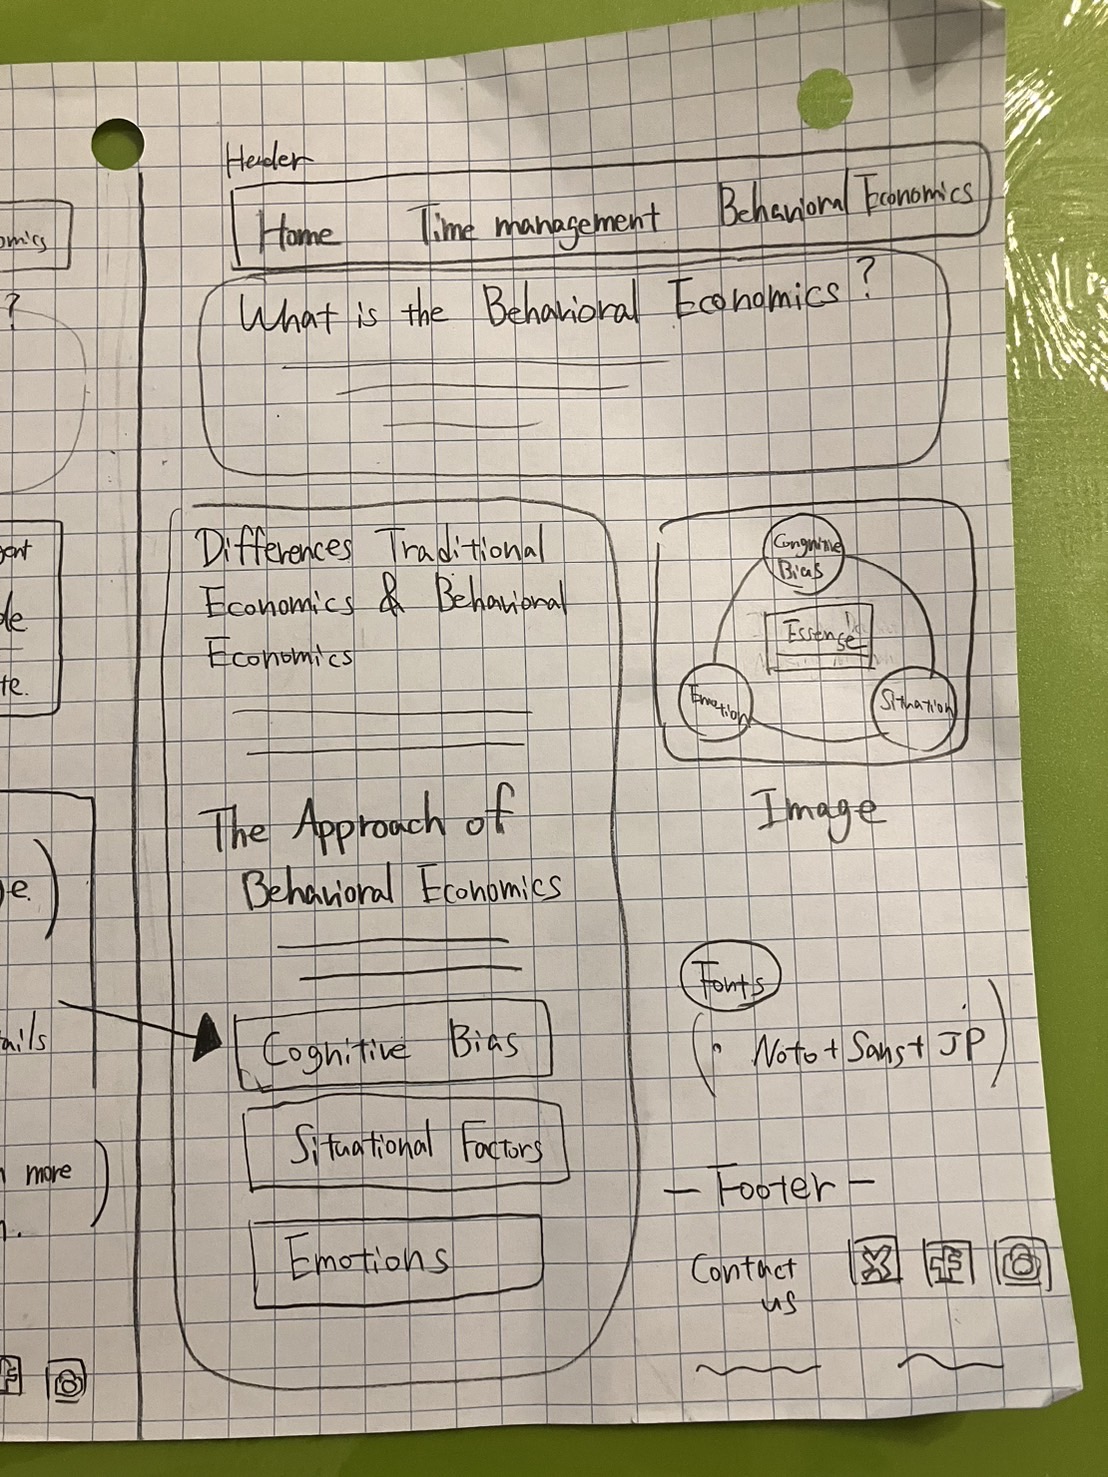 omics
?
ple
te.
e.
ails
more
Header
Home Time management Behavioral Economics
What is the Behavioral Economics?
Differences Traditional
Economics & Behavioral
Economics
The Approach of
Behavioral Economics
Cognitive Bias
Situational Factors
Emotions
Congnitive
Bias
Essense
Emotion
Situation
Image
Fonts
(• Noto+Sans+JP)
- Footer -
Contact
us
X f